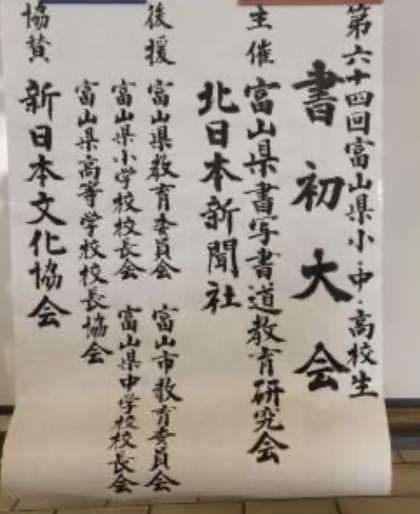 第六十四回富山県小・中・高校生
書初大会
主催 富山県書写書道教育研究会
北日本新聞社
後援 富山県教育委員会 富山市教育委員会
富山県小学校校長会 富山県中学校校長会
富山県高等学校校長協会
協賛 新日本文化協会